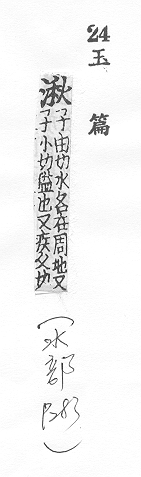 24玉篇
湫子由切水名在周地又
子小切隘也又疾久切
(水部